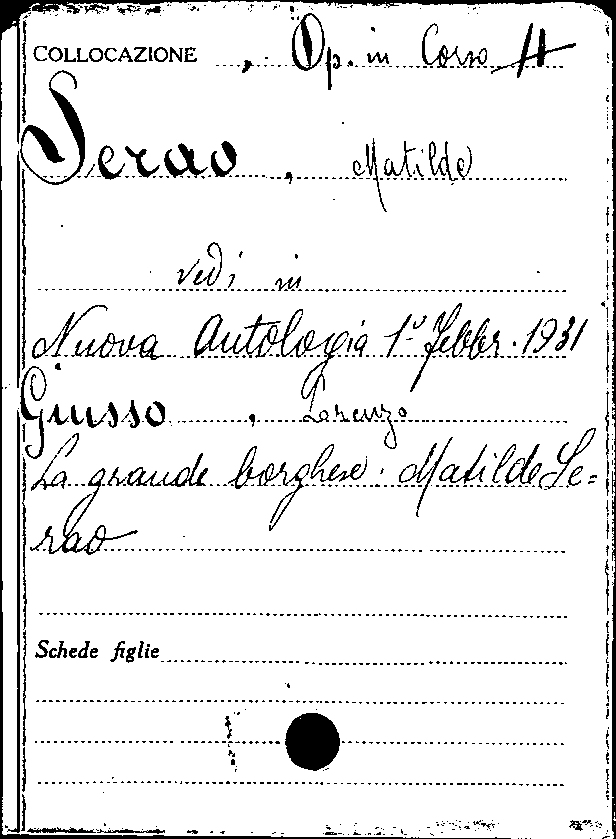 COLLOCAZIONE , Op. in Corso H
Serao , Matilde
vedi in
Nuova Antologia 1º Febbr. 1931
Giusso , Lorenzo
La grande borghese. Matilde Se=
rao
Schede figlie